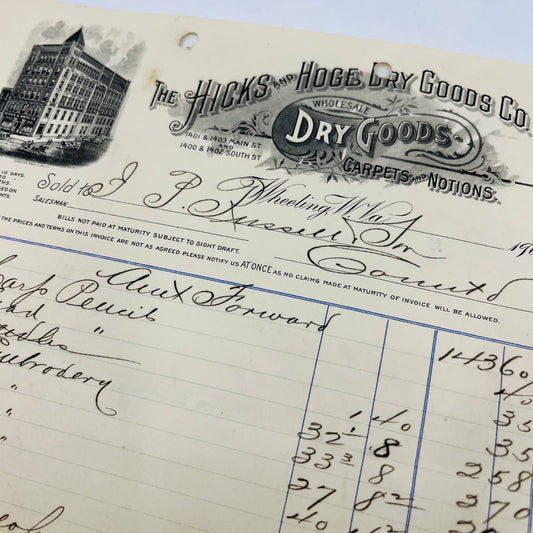 THE HICKS AND HOGE DRY GOODS CO.
WHOLESALE
DRY GOODS
CARPETS AND NOTIONS.
1401 & 1403 MAIN ST.
AND
1400 & 1402 SOUTH ST.
10 DAYS.
Sold to J. P. Russell & Son
Wheeling, W. Va. 190
SALESMAN
BILLS NOT PAID AT MATURITY SUBJECT TO SIGHT DRAFT.
THE PRICES AND TERMS ON THIS INVOICE ARE NOT AS AGREED PLEASE NOTIFY US AT ONCE AS NO CLAIMS MADE AT MATURITY OF INVOICE WILL BE ALLOWED.
Amt Forward 14360
Carp Pencils 40
" 1 40 35
32¹ 8 35
Embrodery 33³ 8 258
" 27 8½ 270
" 40